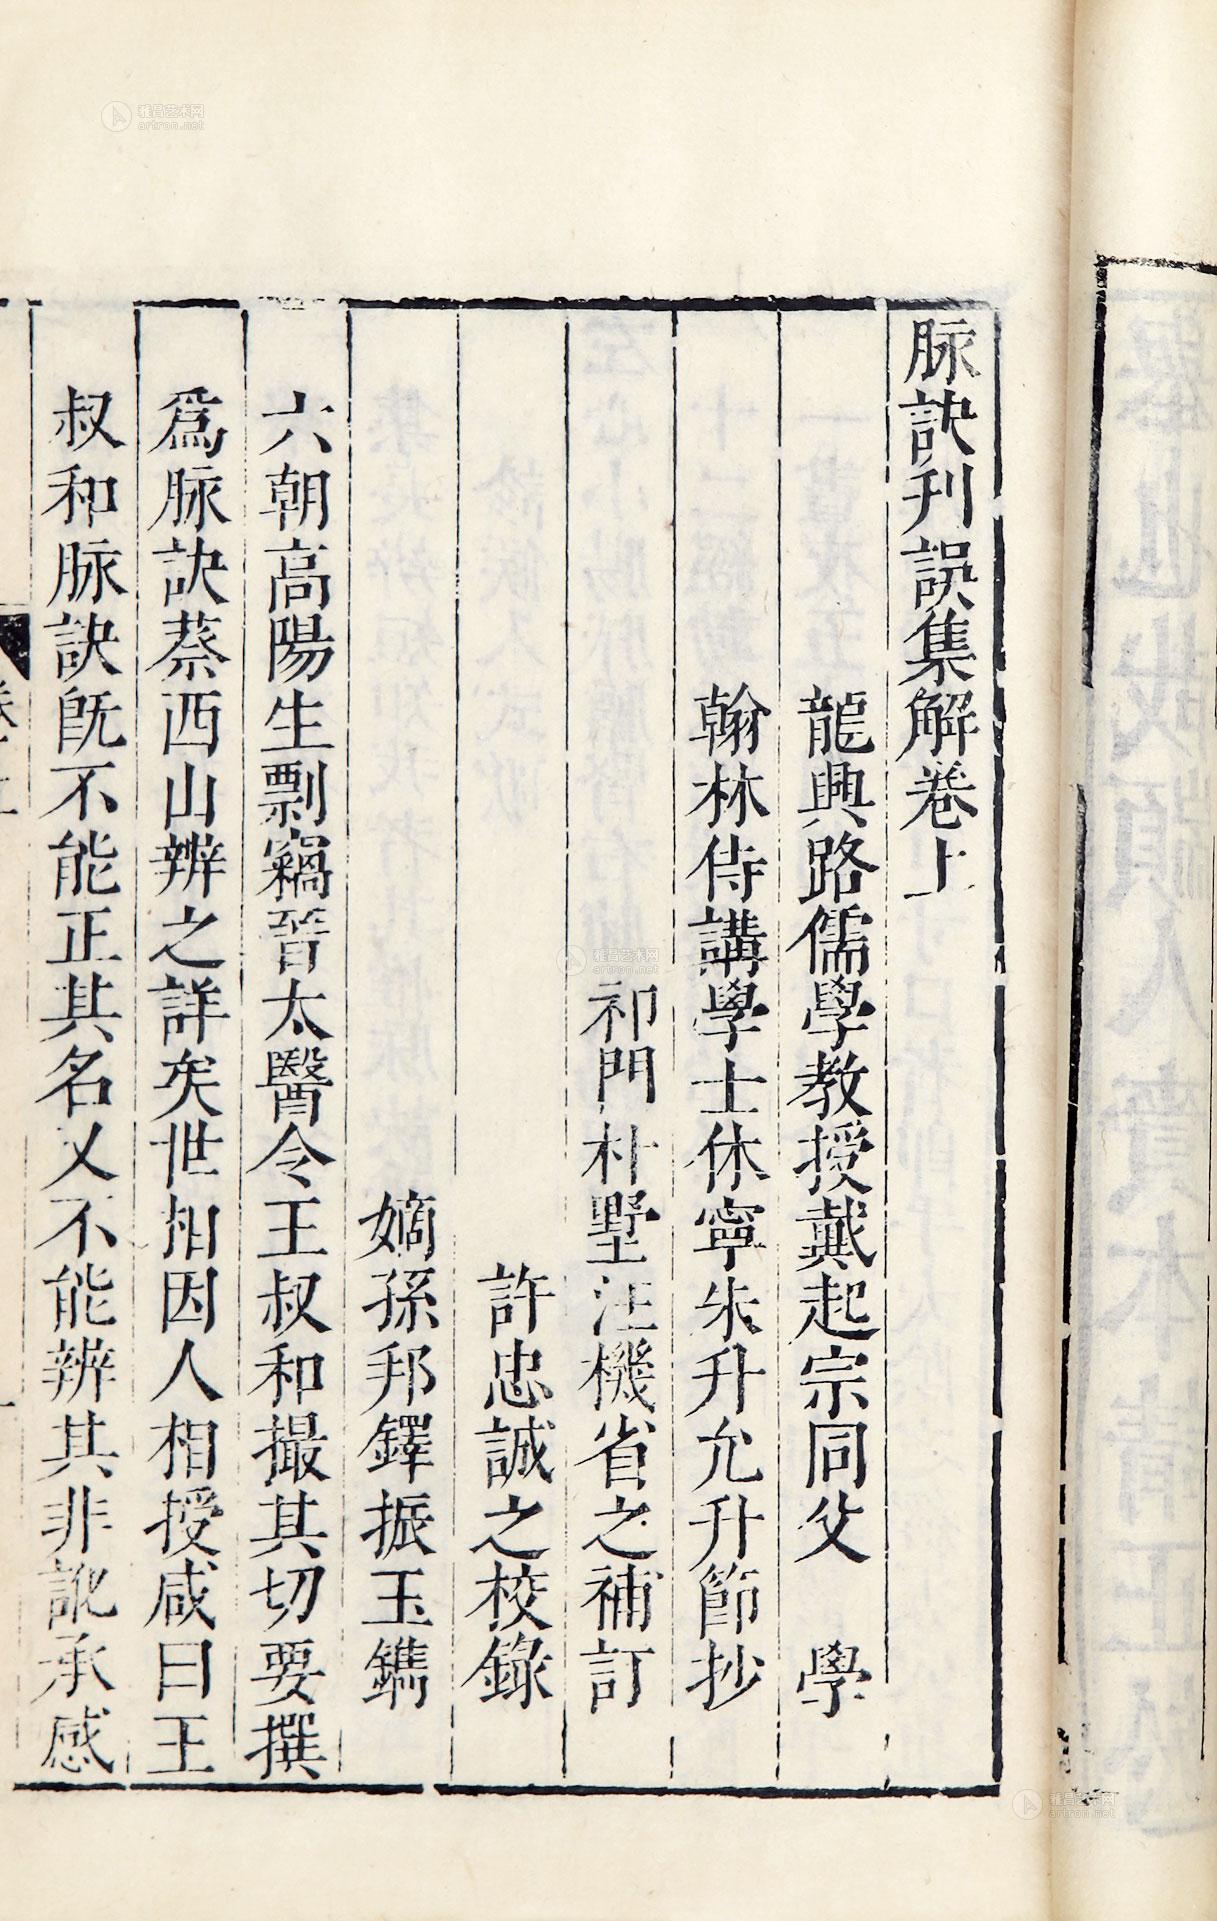 脉訣刋誤集解卷上
龍興路儒學教授戴起宗同父　學
翰林侍講學士休寧朱升允升節抄
祁門朴墅汪機省之補訂
許忠誠之校錄
嫡孫邦鐸振玉鐫
六朝高陽生剽竊晉太醫令王叔和撮其切要撰
爲脉訣蔡西山辨之詳矣世相因人相授咸曰王
叔和脉訣旣不能正其名又不能辨其非訛承感
雅昌艺术网
artron.net
雅昌艺术网
artron.net
雅昌艺术网
artron.net